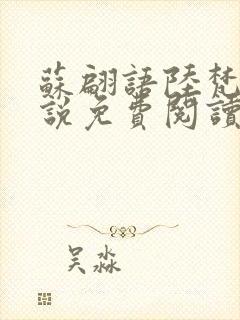 蘇翩語陸梵
說免費閱讀
吳淼